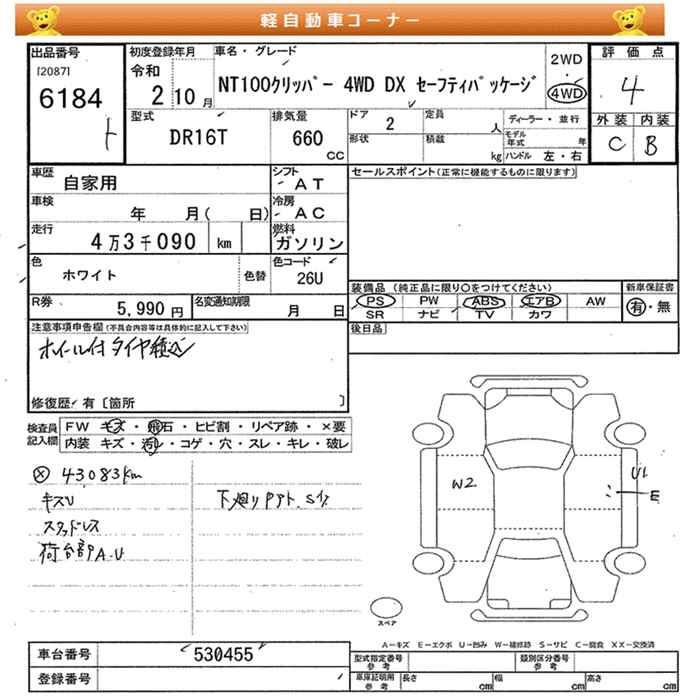 軽自動車コーナー
出品番号
[2087]
6184
ト
初度登録年月
令和
2 10月
車名・グレード
NT100クリッパー 4WD DX セーフティパッケージ
2WD
4WD
評価点
4
外装 内装
C B
型式
DR16T
排気量
660
CC
ドア
2
定員
人
形状
積載
kg
ディーラー・並行
モデル年式
年
ハンドル 左・右
車歴
自家用
シフト
AT
セールスポイント(正常に機能するものに限ります)
車検
年 月( 日)
冷房
AC
走行
4万3千090 km
燃料
ガソリン
色
ホワイト
色替
色コード
26U
装備品 (純正品に限り○をつけてください)
新車保証書
PS PW ABS エアB AW
有・無
SR ナビ TV カワ
R券
5,990円
名変通知期限
月 日
後日品
注意事項申告欄(不具合内容等は具体的に記入して下さい)
ホイール付タイヤ積込
修復歴 有〔箇所 〕
検査員記入欄
FW キズ・飛石・ヒビ割・リペア跡・×要
内装 キズ・汚レ・コゲ・穴・スレ・キレ・破レ
43083km
キズU
スタッドレス
荷台部PA.U
下廻りPアト.S1/2
W2
U1
E
スペア
A−キズ E−エクボ U−凹み W−補修跡 S−サビ C−腐食 XX−交換済
車台番号
530455
登録番号
型式指定番号
参考
類別区分番号
参考
車庫証明用
参考
長さ
cm
幅
cm
高さ
cm